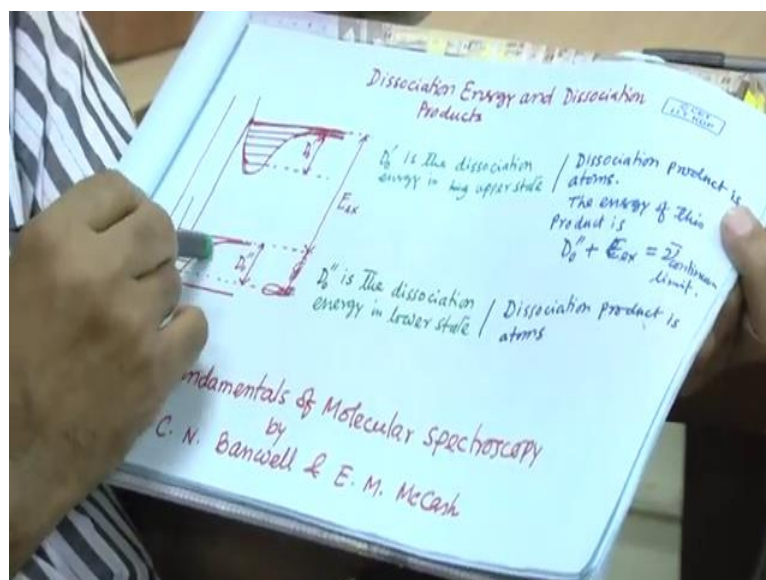 Dissociation Energy and Dissociation
Products
D₀'
Eex
D₀' is the dissociation
energy in upper state
/ Dissociation product is
atoms.
The energy of this
Product is
D₀'' + Eex = ν̄ continuum
limit.
D₀''
D₀'' is the dissociation
energy in lower state
/ Dissociation product is
atoms
ndamentals of Molecular spectroscopy
by
C. N. Banwell & E. M. McCash